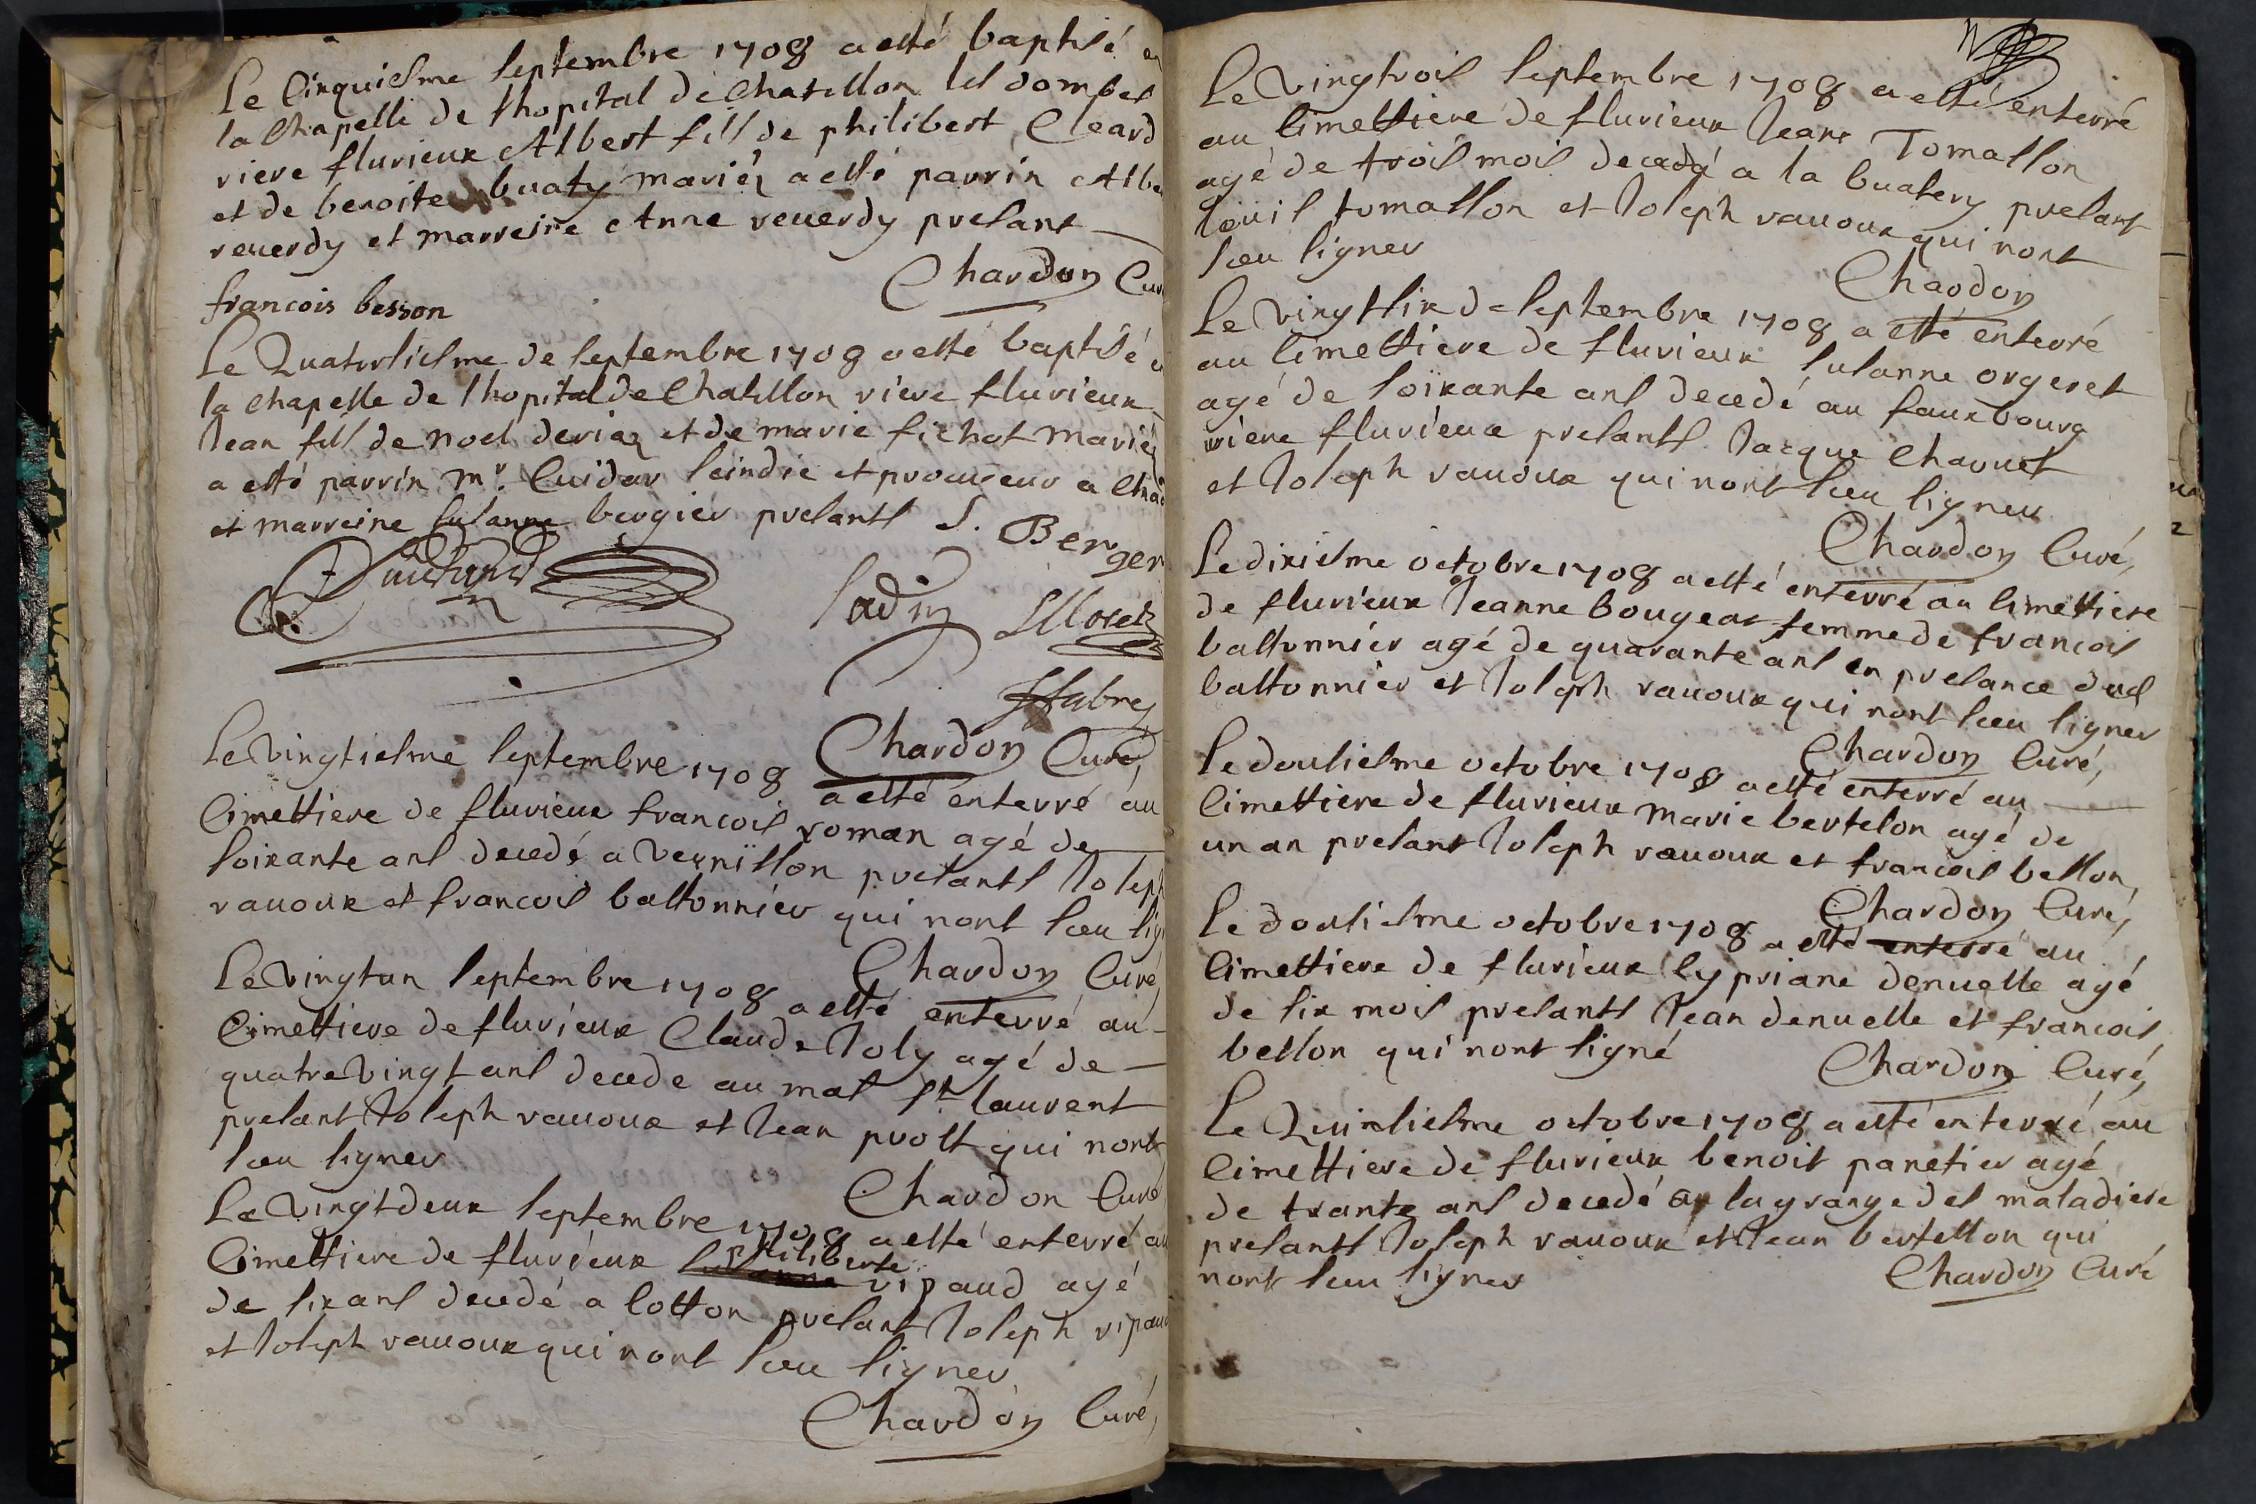 Le Cinquiesme septembre 1708 a esté baptisé en
la Chapelle de lhopital de Chatillon les dombes
riere fluvieux Albert fils de philibert Cleard
et de benoite buaty mariéz a esté parrin Albe
reuerdy et marreine Anne reuerdy presant
Chardon Cur
francois besson
Le Quatorsiesme de septembre 1708 a esté baptisé
la chapelle de lhopital de Chatillon riere fluvieux
Jean fils de noel deriaz et de marie fichet mariéz
a esté parrin mr. Cuidar scindic et procureur a Cha
et marreine susanne bergier presants S. Berger
Sadin
Chardon Curé,
Le vingtiesme septembre 1708 a esté enterré au
Cimettiere de fluvieux francois roman agé de
soixante ans decedé a Vernisson presants Joseph
rauoux et francois bastonnier qui nont sceu sig
Chardon Curé
Le vingtun septembre 1708 a esté enterré au
Cimettiere de fluvieux Claude Joly agé de
quatre vingt ans decede au mas st laurent
presant Joseph rauoux et Jean prost qui nont
sceu signer
Chardon Curé
Le vingtdeux septembre 1708 a esté enterré au
philiberte
Cimettiere de fluvieux susanne ripaud agé
de six ans decedé a Cotton presant Joseph ripau
et Joseph rauoux qui nont sceu signer
Chardon Curé,
Le vingtrois septembre 1708 a esté enterré
au Cimettiere de fluvieux Jean Tomasson
agé de trois mois decedé a la buatery presant
Louis tomasson et Joseph rauoux qui nont
sceu signer
Chardon
Le vingtsix de septembre 1708 a esté enterré
au Cimettiere de fluvieux susanne orgeret
agé de soixante ans decedé au fauxbourg
riere fluvieux presants Jacque Chavuet
et Joseph rauoux qui nont sceu signer
Chardon Curé,
Le dixiesme octobre 1708 a esté enterré au Cimettiere
de fluvieux Jeanne bougear femme de francois
bastonnier agé de quarante ans en presance dud
bastonnier et Joseph rauoux qui nont sceu signer
Chardon Curé,
Le dousiesme octobre 1708 a esté enterré au
Cimettiere de fluvieux marie bertelon agé de
un an presant Joseph rauoux et francois besson,
Chardon Curé,
Le dousiesme octobre 1708 a esté enterré au
Cimettiere de fluvieux Cypriane denuelle agé
de six mois presants Jean denuelle et francois
besson qui nont signé
Chardon Curé,
Le Quinsiesme octobre 1708 a esté enterré au
Cimettiere de fluvieux benoit panetier agé
de trante ans decedé a la grange des maladiere
presants Joseph rauoux et Jean bertesson qui
nont sceu signer
Chardon Curé